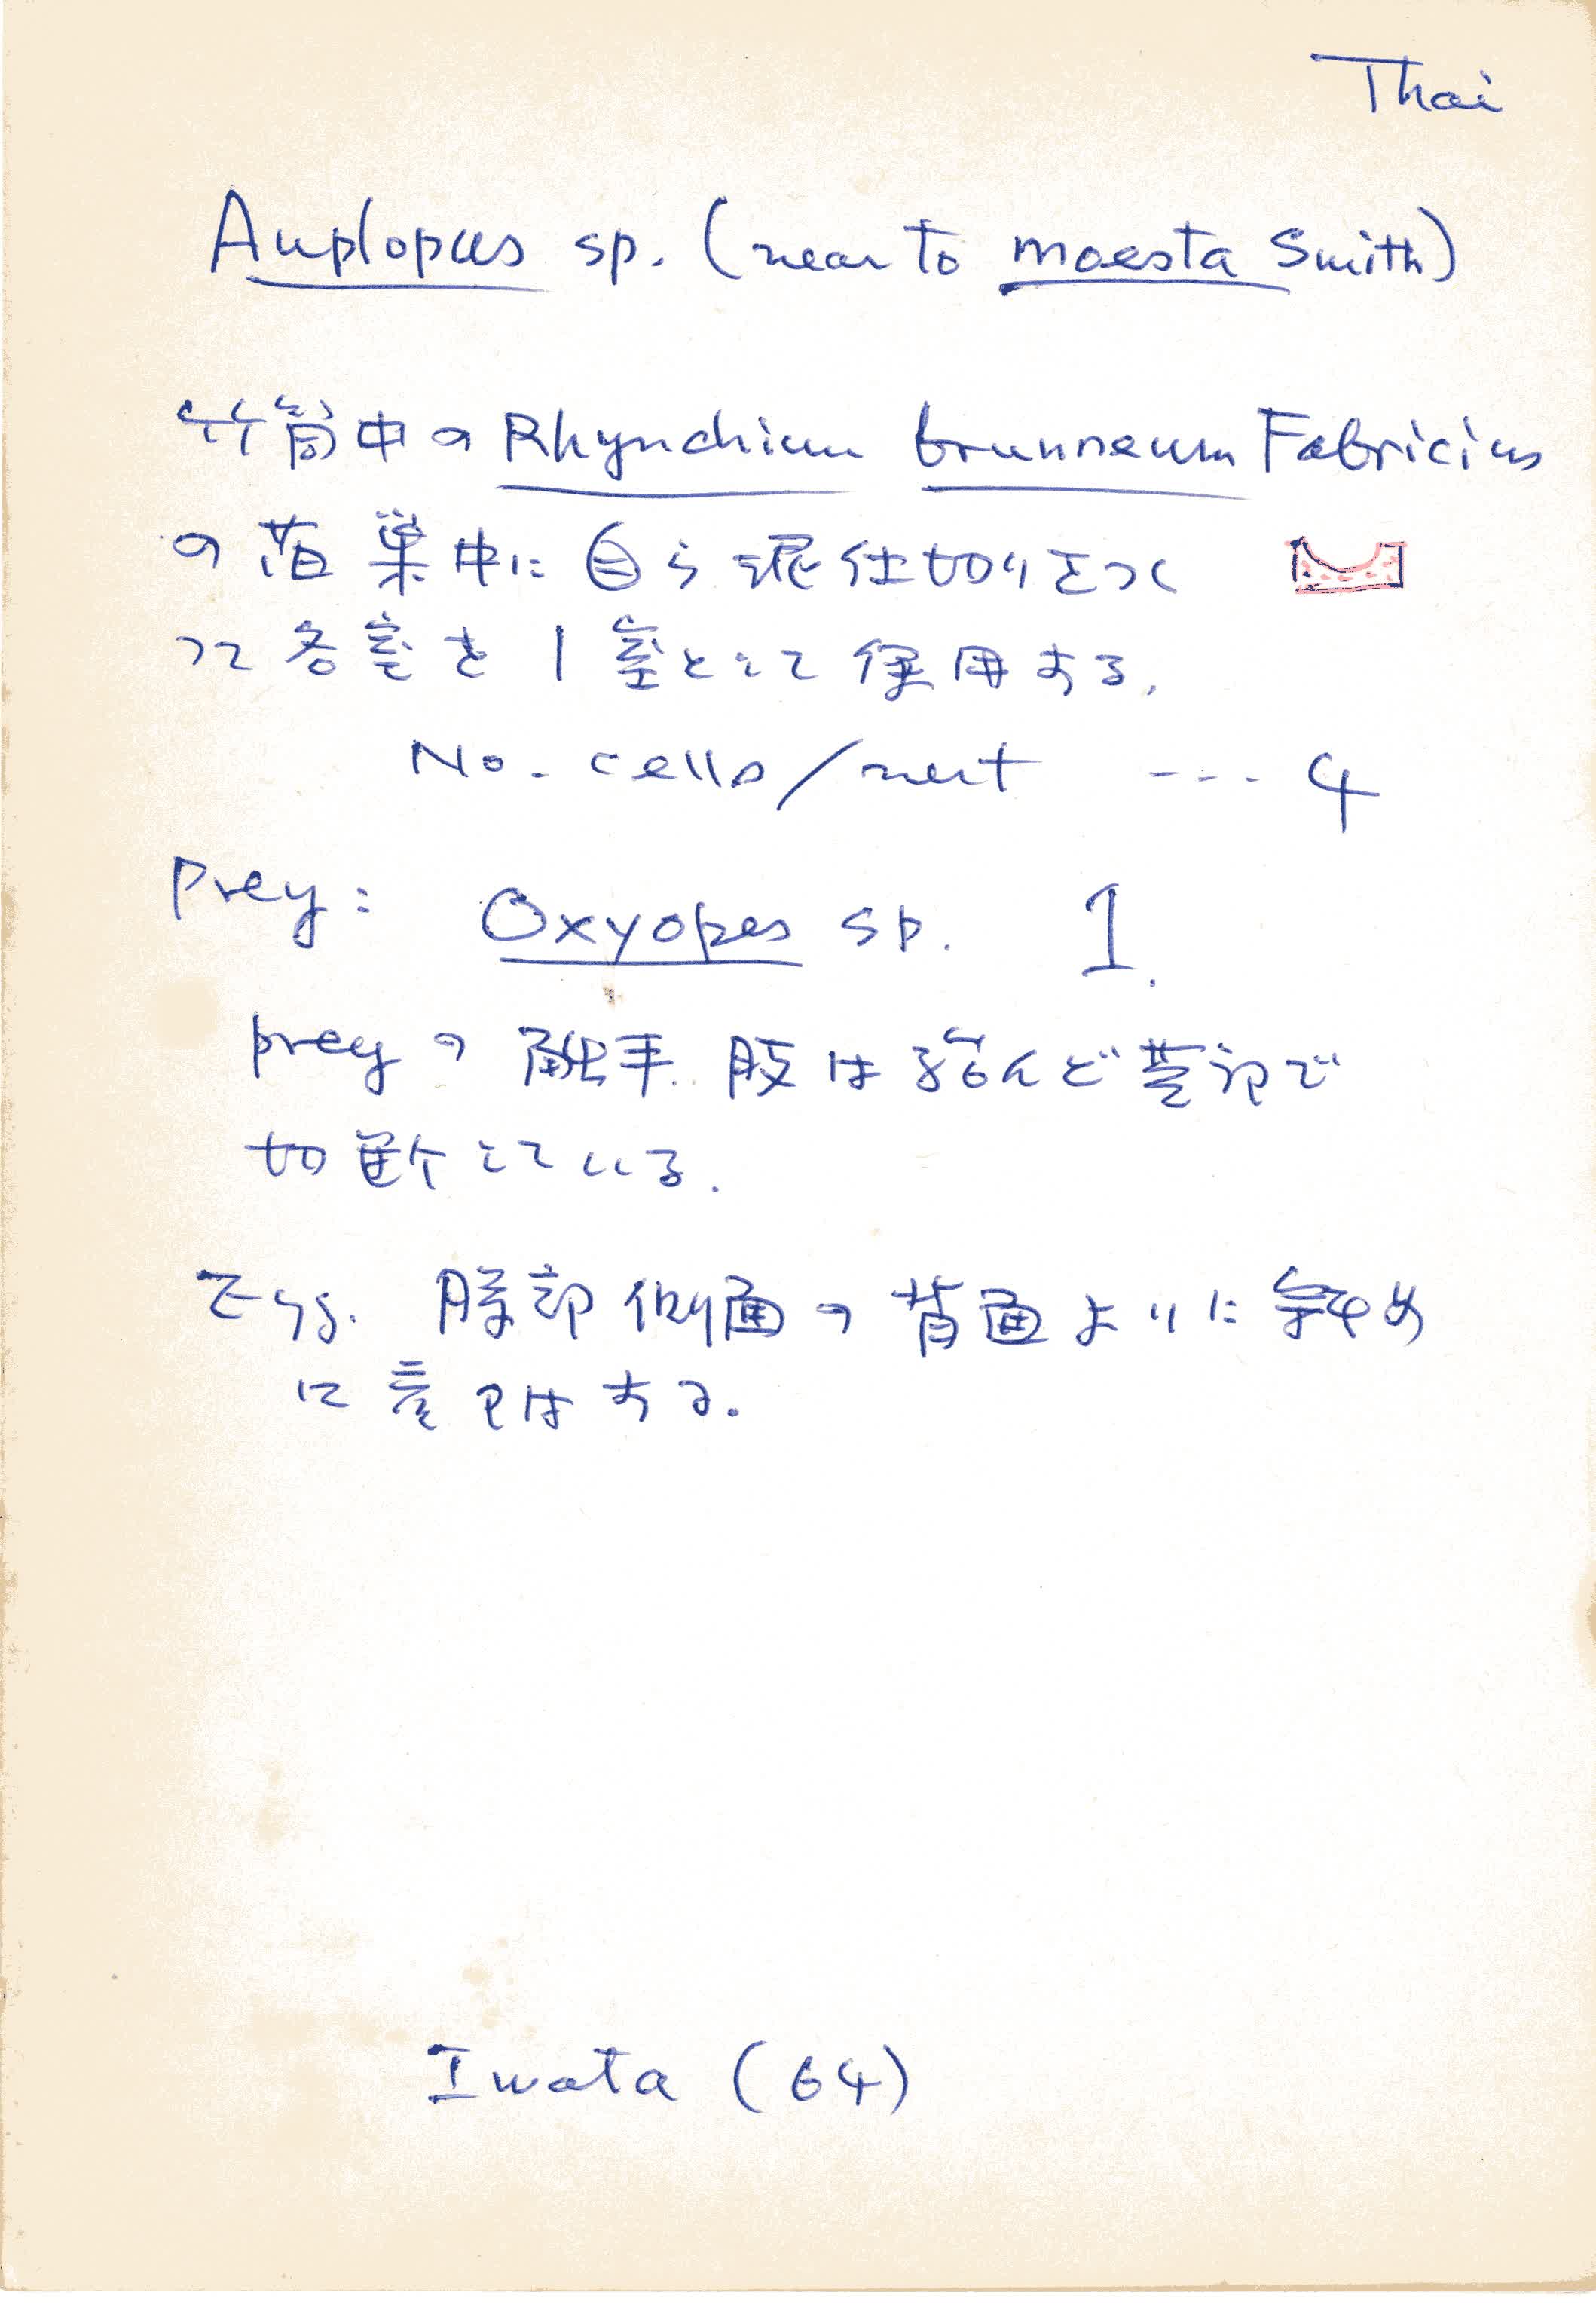 Thai
Auplopus sp. (near to moesta Smith)
竹筒中の Rhynchium brunneum Fabricius
の旧巣中に自ら泥仕切りをつく
って各室を1室として使用する.
No. cells/nest --- 4
Prey: Oxyopes sp. 1.
preyの触手. 肢は殆んど基部で
切断している.
Egg. 腹部側面の背面よりに斜め
に産つけする.
Iwata (64)